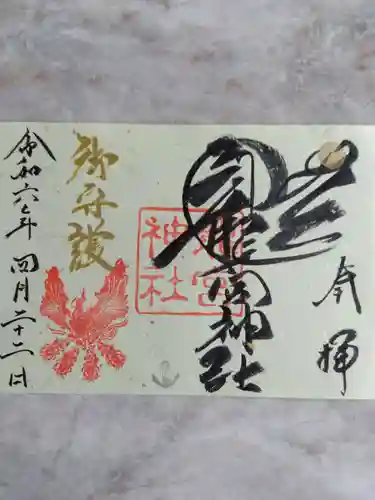 奉拝
龍宮神社
龍宮
神社
令和六年四月二十二日